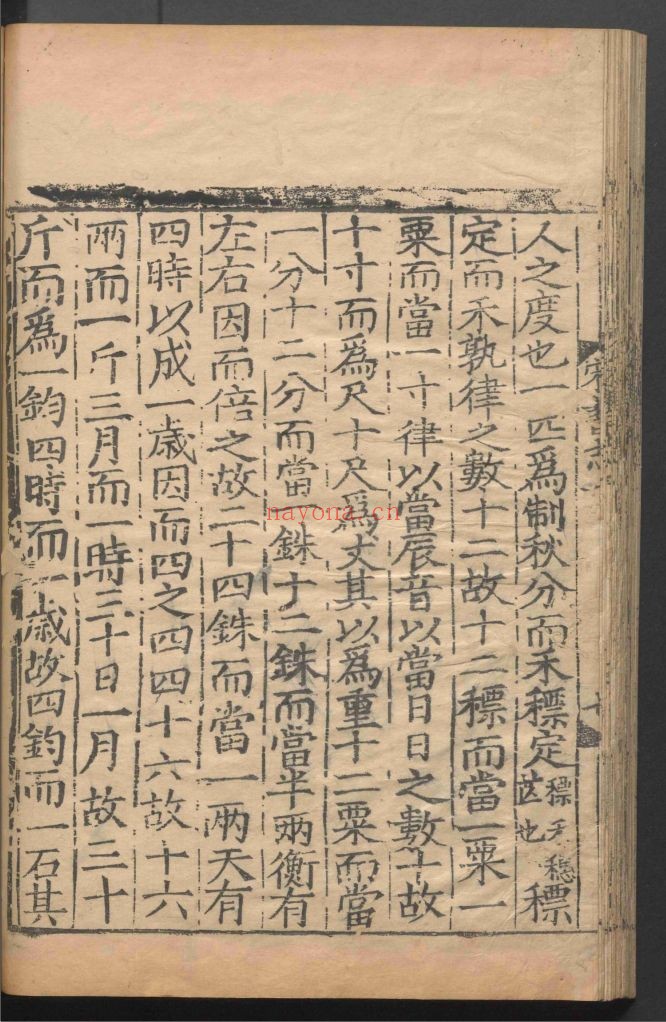 人之度也一匹爲制秋分而禾穮定穮禾穗芒也穮
定而禾孰律之數十二故十二穮而當一粟一
粟而當一寸律以當辰音以當日日之數十故
十寸而爲尺十尺爲丈其以爲重十二粟而當
一分十二分而當一銖十二銖而當半兩衡有
左右因而倍之故二十四銖而當一兩天有
四時以成一歲因而四之四四十六故十六
兩而一斤三月而一時三十日一月故三十
斤而爲一鈞四時而一歲故四鈞而一石其
nayona.cn